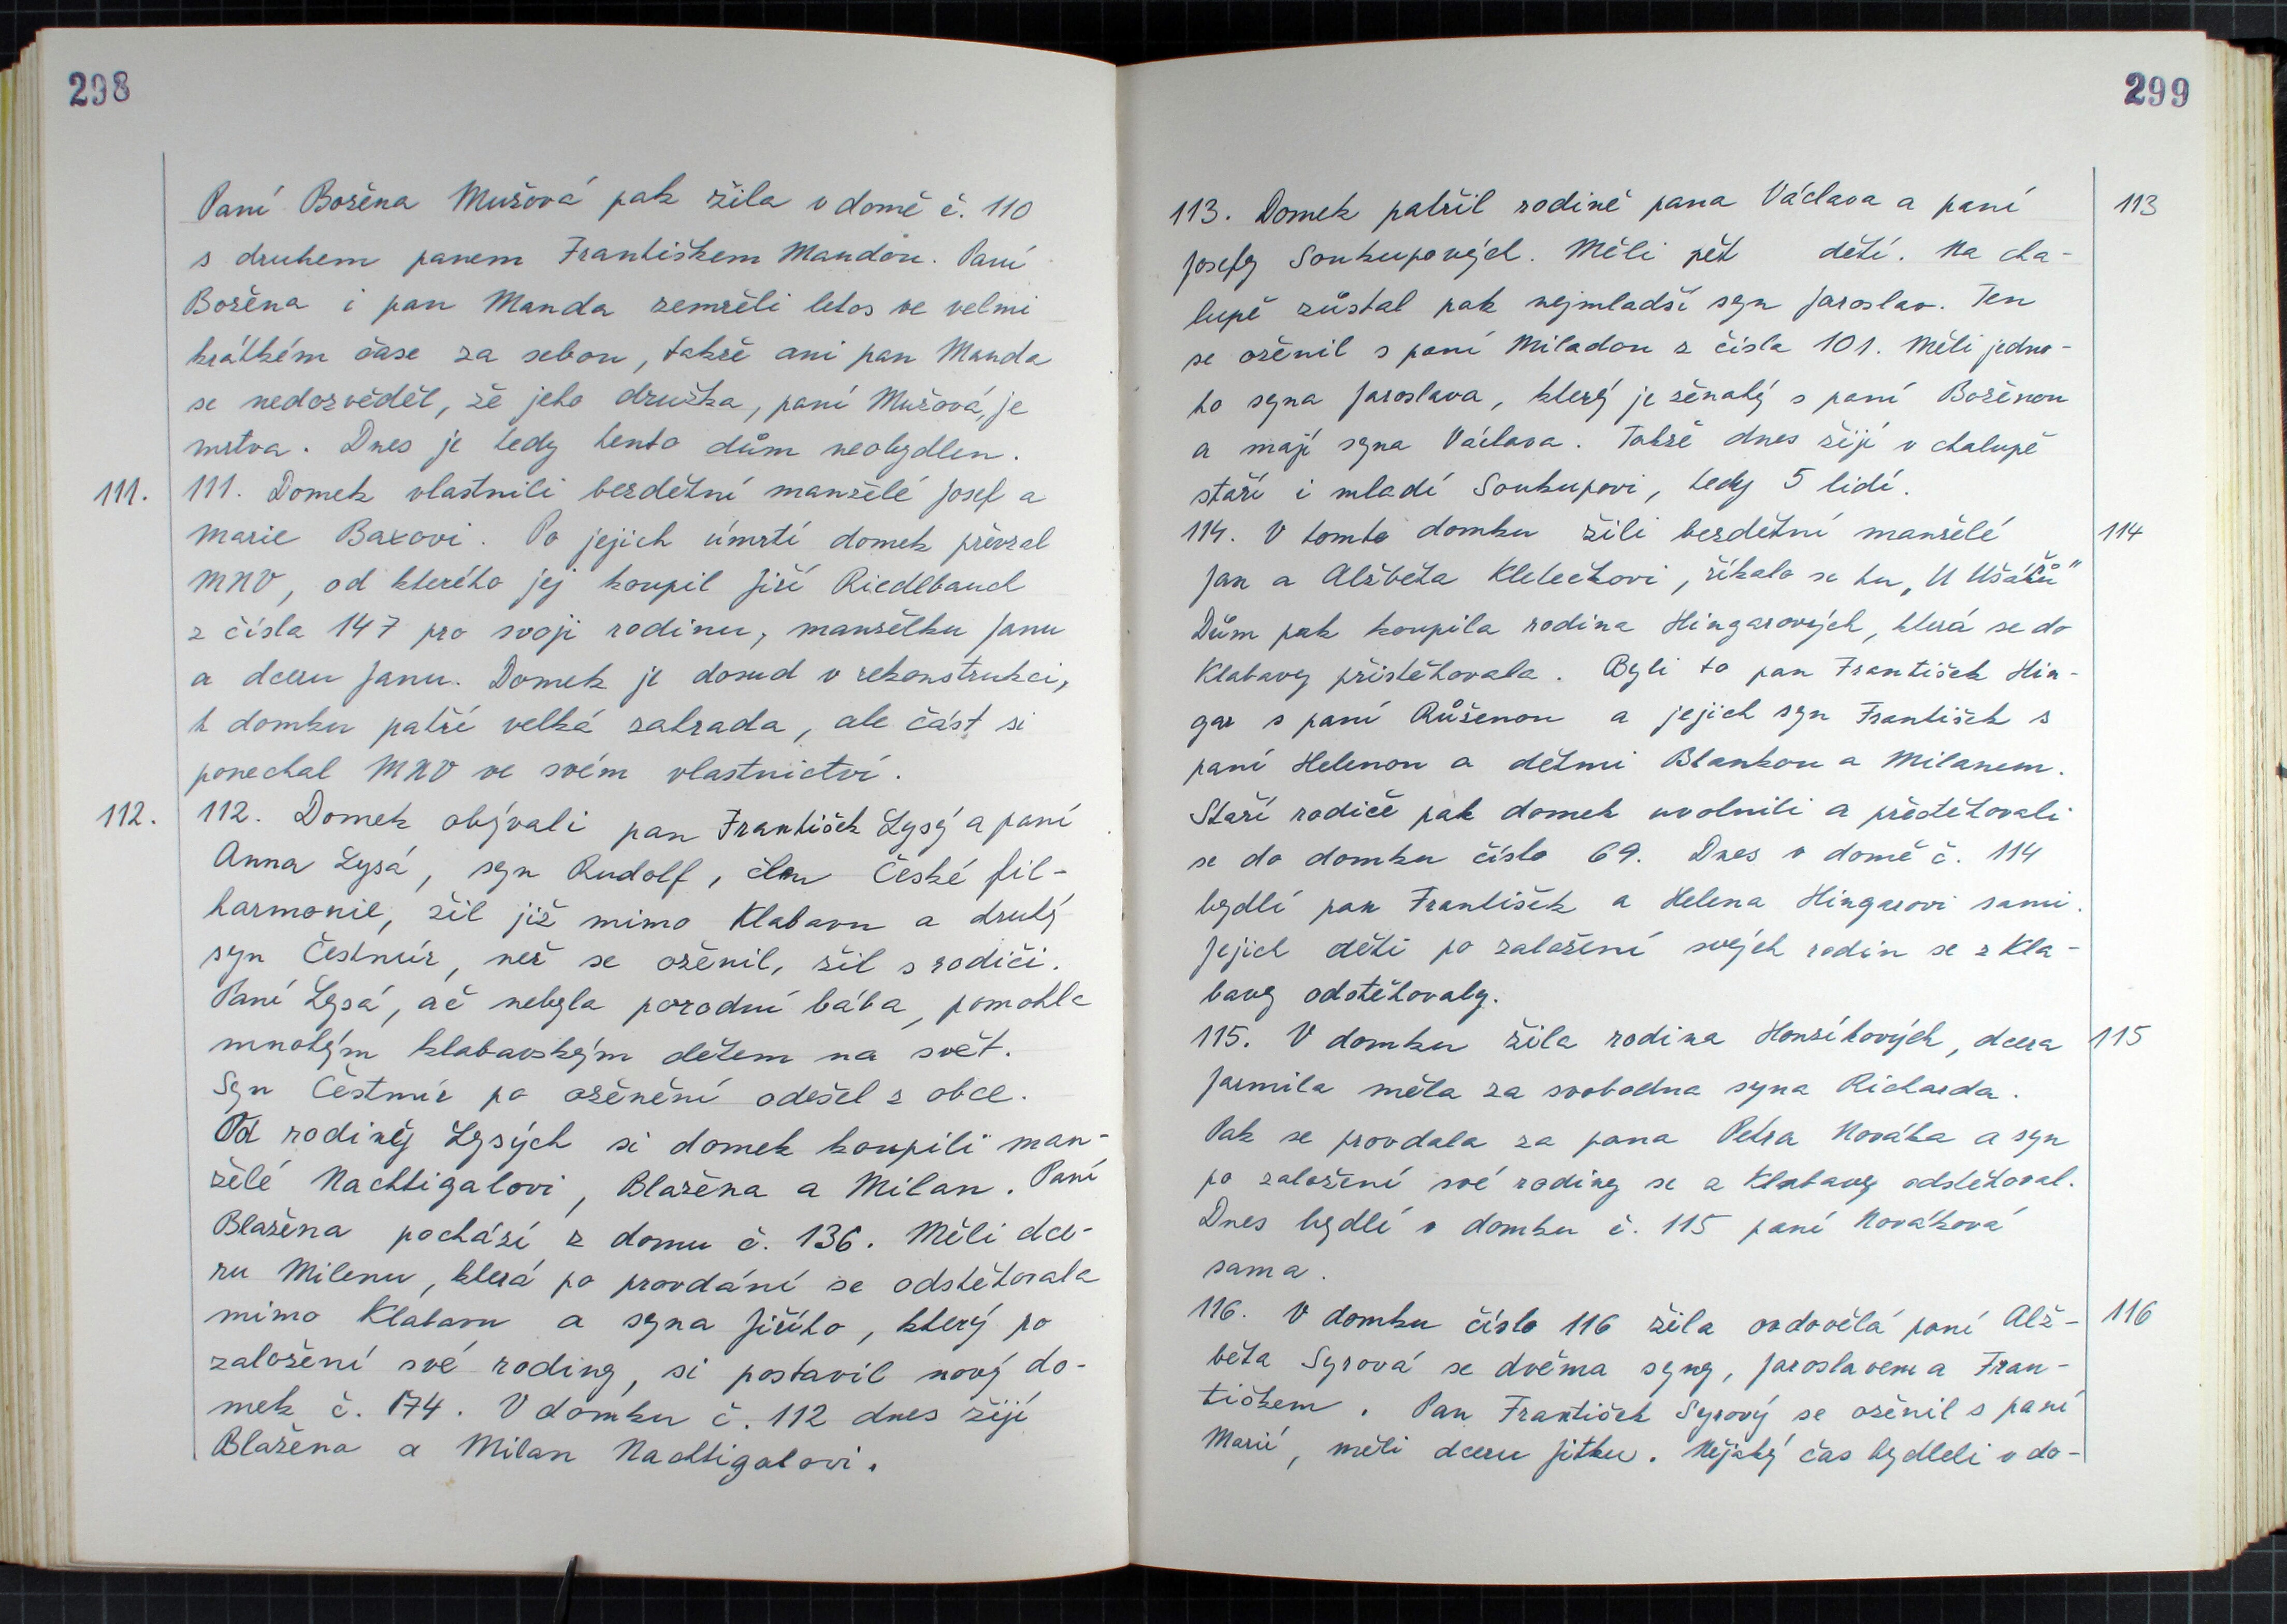 298
Paní Božena Mušová pak žila v domě č. 110
s druhem panem Františkem Mandou. Paní
Božena i pan Manda zemřeli letos ve velmi
krátkém čase za sebou, takže ani pan Manda
se nedozvěděl, že jeho družka, paní Mušová, je
mrtva. Dnes je tedy tento dům neobydlen.
111. 111. Domek vlastnili bezdětní manželé Josef a
Marie Baxovi. Po jejich úmrtí domek převzal
MNV, od kterého jej koupil Jiří Riedlbauch
z čísla 147 pro svoji rodinu, manželku Janu
a dceru Janu. Domek je dosud v rekonstrukci,
k domku patří velká zahrada, ale část si
ponechal MNV ve svém vlastnictví.
112. 112. Domek obývali pan František Lysý a paní
Anna Lysá, syn Rudolf, člen České fil-
harmonie, žil již mimo Klabavu a druhý
syn Čestmír, než se oženil, žil s rodiči.
Paní Lysá, ač nebyla porodní bába, pomohla
mnohým klabavským dětem na svět.
Syn Čestmír po oženění odešel z obce.
Od rodiny Lysých si domek koupili man-
želé Nachtigalovi, Blažena a Milan. Paní
Blažena pochází z domu č. 136. Měli dce-
ru Milenu, která po provdání se odstěhovala
mimo Klabavu a syna Jiřího, který po
založení své rodiny, si postavil nový do-
mek č. 174. V domku č. 112 dnes žijí
Blažena a Milan Nachtigalovi.
299
113. Domek patřil rodině pana Václava a paní 113
Josefy Soukupových. Měli pět dětí. Na cha-
lupě zůstal pak nejmladší syn Jaroslav. Ten
se oženil s paní Miladou z čísla 101. Měli jedno-
ho syna Jaroslava, který je ženatý s paní Boženou
a mají syna Václava. Takže dnes žijí v chalupě
staří i mladí Soukupovi, tedy 5 lidí.
114. V tomto domku žili bezdětní manželé 114
Jan a Alžběta Kletečkovi, říkalo se tu "U Ušáků"
Dům pak koupila rodina Hingarových, která se do
Klabavy přistěhovala. Byli to pan František Hin-
gar s paní Růženou a jejich syn František s
paní Helenou a dětmi Blankou a Milanem.
Staří rodiče pak domek uvolnili a přestěhovali
se do domku číslo 69. Dnes v domě č. 114
bydlí pan František a Helena Hingarovi sami.
Jejich děti po založení svých rodin se z Kla-
bavy odstěhovaly.
115. V domku žila rodina Honzíkových, dcera 115
Jarmila měla za svobodna syna Richarda.
Pak se provdala za pana Petra Nováka a syn
po založení své rodiny se z Klabavy odstěhoval.
Dnes bydlí v domku č. 115 paní Nováková
sama.
116. V domku číslo 116 žila ovdovělá paní Alž- 116
běta Syrová se dvěma syny, Jaroslavem a Fran-
tiškem. Pan František Syrový se oženil s paní
Marií, měli dceru Jitku. Nějaký čas bydleli v do-